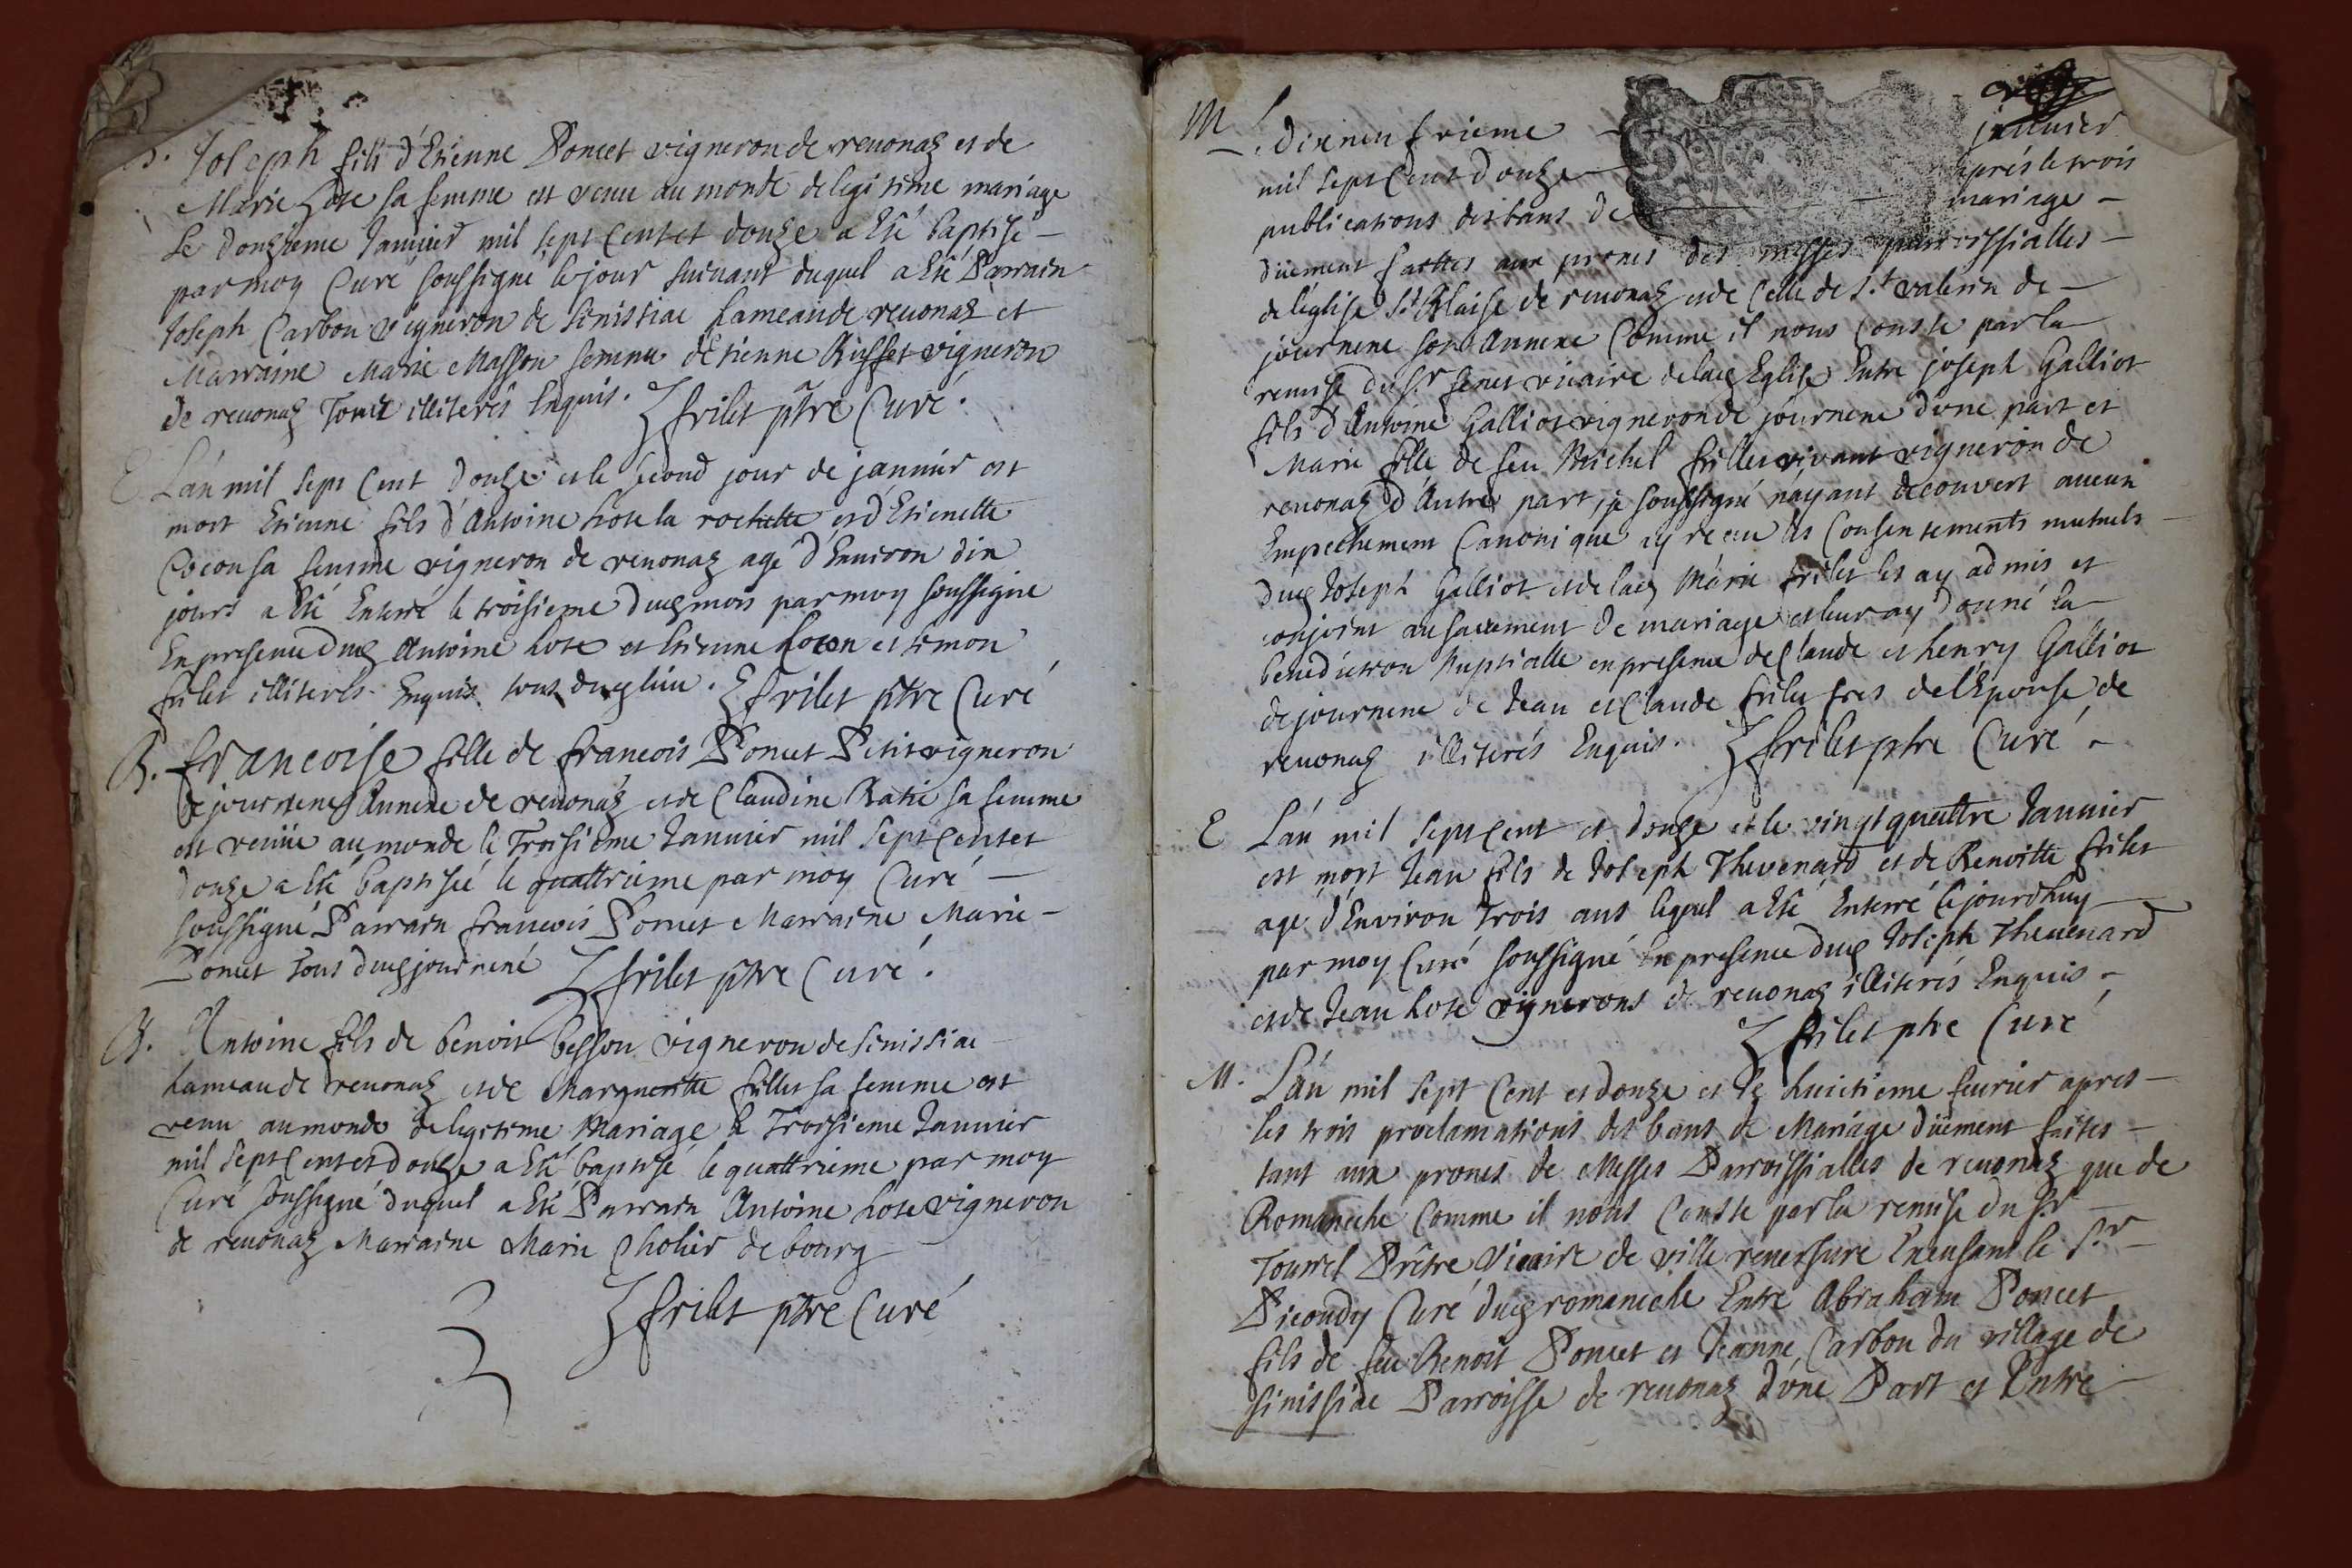 B. Joseph fils d'Etienne Poncet vigneron de reuonas et de
Marie hote sa femme est venu au monde de legitime mariage
le douzieme Januier mil sept cent et douze a Eté baptisé
par moy Curé soussigné le jour suiuant duquel a Eté Parrain
Joseph Carbon vigneron de senissiac hameau de reuonas et
Marraine Marie Masson femme d'etienne vigneron
de reuonas Tous illiterés Enquis. frilet ptre Curé.
E L'an mil sept cent douze et le second jour de januier est
mort Etienne fils d'Antoine hote la rochette et d'Etienette
Cocon sa femme vigneron de reuonas agé d'Enuiron dix
jours a Eté Enterré le troisieme dud mois par moy soussigné
En presence dud Antoine hote et Etienne Cocon et simon
frilet illiterés Enquis tous dud lieu. frilet ptre Curé
B. francoise fille de francois Poncet Petit vigneron
de journene Annexe de reuonas et de Claudine Ratie sa femme
est venüe au monde le Troisieme Januier mil sept cent et
douze a Eté baptisée le quattrieme par moy Curé
soussigné Parrain francois Poncet Marraine Marie
Poncet tous dud journené frilet ptre Curé.
B. Antoine fils de benoit besson vigneron de senissiac
hameau de reuonas et de Margueritte frillet sa femme est
venu au monde de legitime Mariage le Troisieme Januier
mil sept cent et douze a Eté baptisé le quattrieme par moy
Curé soussigné duquel a Eté Parrain Antoine hote vigneron
de reuonas Marraine Marie Cholier de bourg
frilet ptre Curé
M Le dixneufvieme januier
mil sept Cent douze aprés le trois
publications des bans de mariage
düement faittes aux prones des messes parroissialles
de l'église St Blaise de reuonas et de Celle de St. valerin de
journene son Annexe Comme il nous Conste par la
remise du Sr senet vicaire de lad Eglise Entre joseph Galliot
fils d'Antoine Galliot vigneron de journene d'une part et
Marie fille de feu Michel frillet vivant vigneron de
reuonas d'Autre part, je soussigné n'ayant decouvert aucun
Empechement Canonique ay receu les Consentements mutuels
dud Joseph Galliot et de lad Marie frilet les ay admis et
conjoint au sacrement de mariage et leur ay donné la
benediction Nuptialle en presence de Claude et henry Galliot
de journene de Jean et Claude frilet fres de l'Epouse de
reuonas illiterés Enquis. frilet ptre Curé
E L'an mil sept cent et douze et le vingt quattre Januier
est mort Jean fils de Joseph Thevenard et de Benoitte frilet
agé d'Environ trois ans lequel a Eté Enterré cejourdhuy
par moy Curé soussigné En presence dud Joseph Theuenard
et de Jean hote vignerons de reuonas illiterés Enquis
frilet ptre Curé
M. L'an mil sept Cent et douze et le huictieme feurier apres
les trois proclamations des bans de Mariage düement faites
tant aux prones de Messes Parroissialles de reuonas que de
Romaneche Comme il nous Conste par la remise du Sr
Tournel Prêtre Vicaire de ville reuersure Enensant le Sr
Picondy Curé dud romaneche Entre Abraham Poncet
fils de feu Benoit Poncet et Jeanne Carbon du village de
sinissiac Parroisse de reuonas d'une Part et Entre